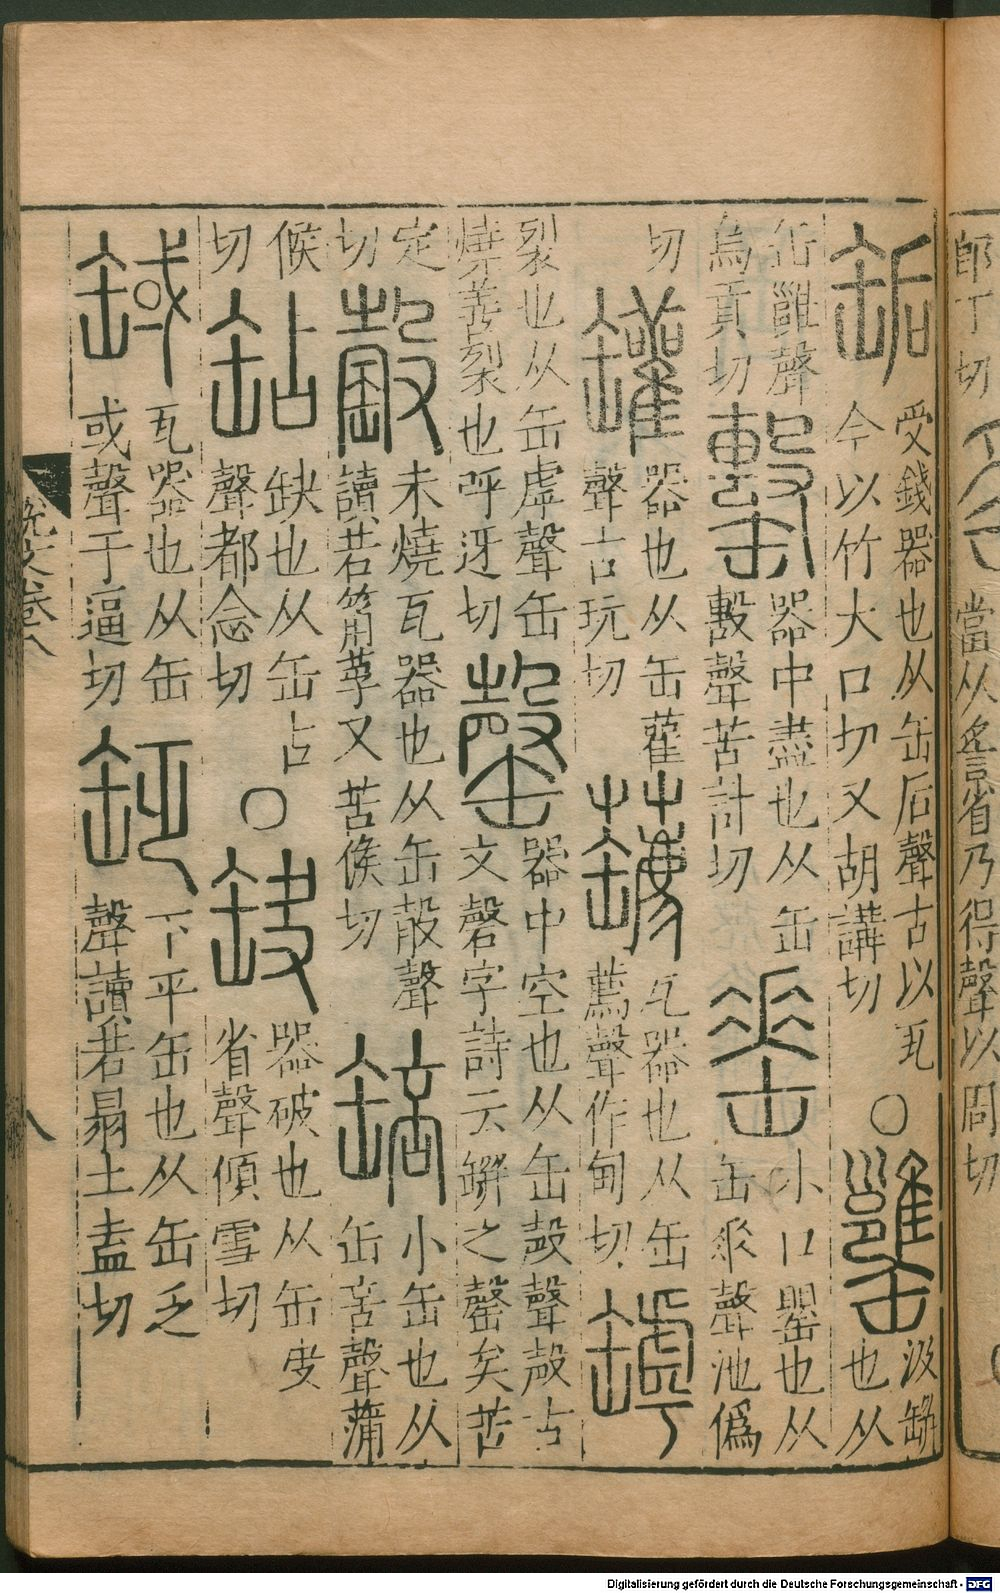 郎丁切
當从䚻省乃得聲以周切
缿
受錢器也从缶后聲古以瓦
今以竹大口切又胡講切
○
罋
汲缾
也从
缶雝聲
烏貢切
罊
器中盡也从缶
毄聲苦計切
小口罌也从
缶𠂹聲池偽
切
罐
器也从缶雚
聲古玩切
瓦器也从缶
薦聲作甸切
罅
裂也从缶虖聲缶
燒善裂也呼迓切
罄
器中空也从缶殸聲殸古
文磬字詩云缾之罄矣苦
定
切
未燒瓦器也从缶㱿聲
讀若筩莩又苦候切
小缶也从
缶咅聲蒲
候
切
缺也从缶占
聲都念切
○
缺
器破也从缶叏
省聲傾雪切
瓦器也从缶
或聲于逼切
下平缶也从缶乏
聲讀若㬥土盍切
說文卷八
八
Digitalisierung gefördert durch die Deutsche Forschungsgemeinschaft - DFG